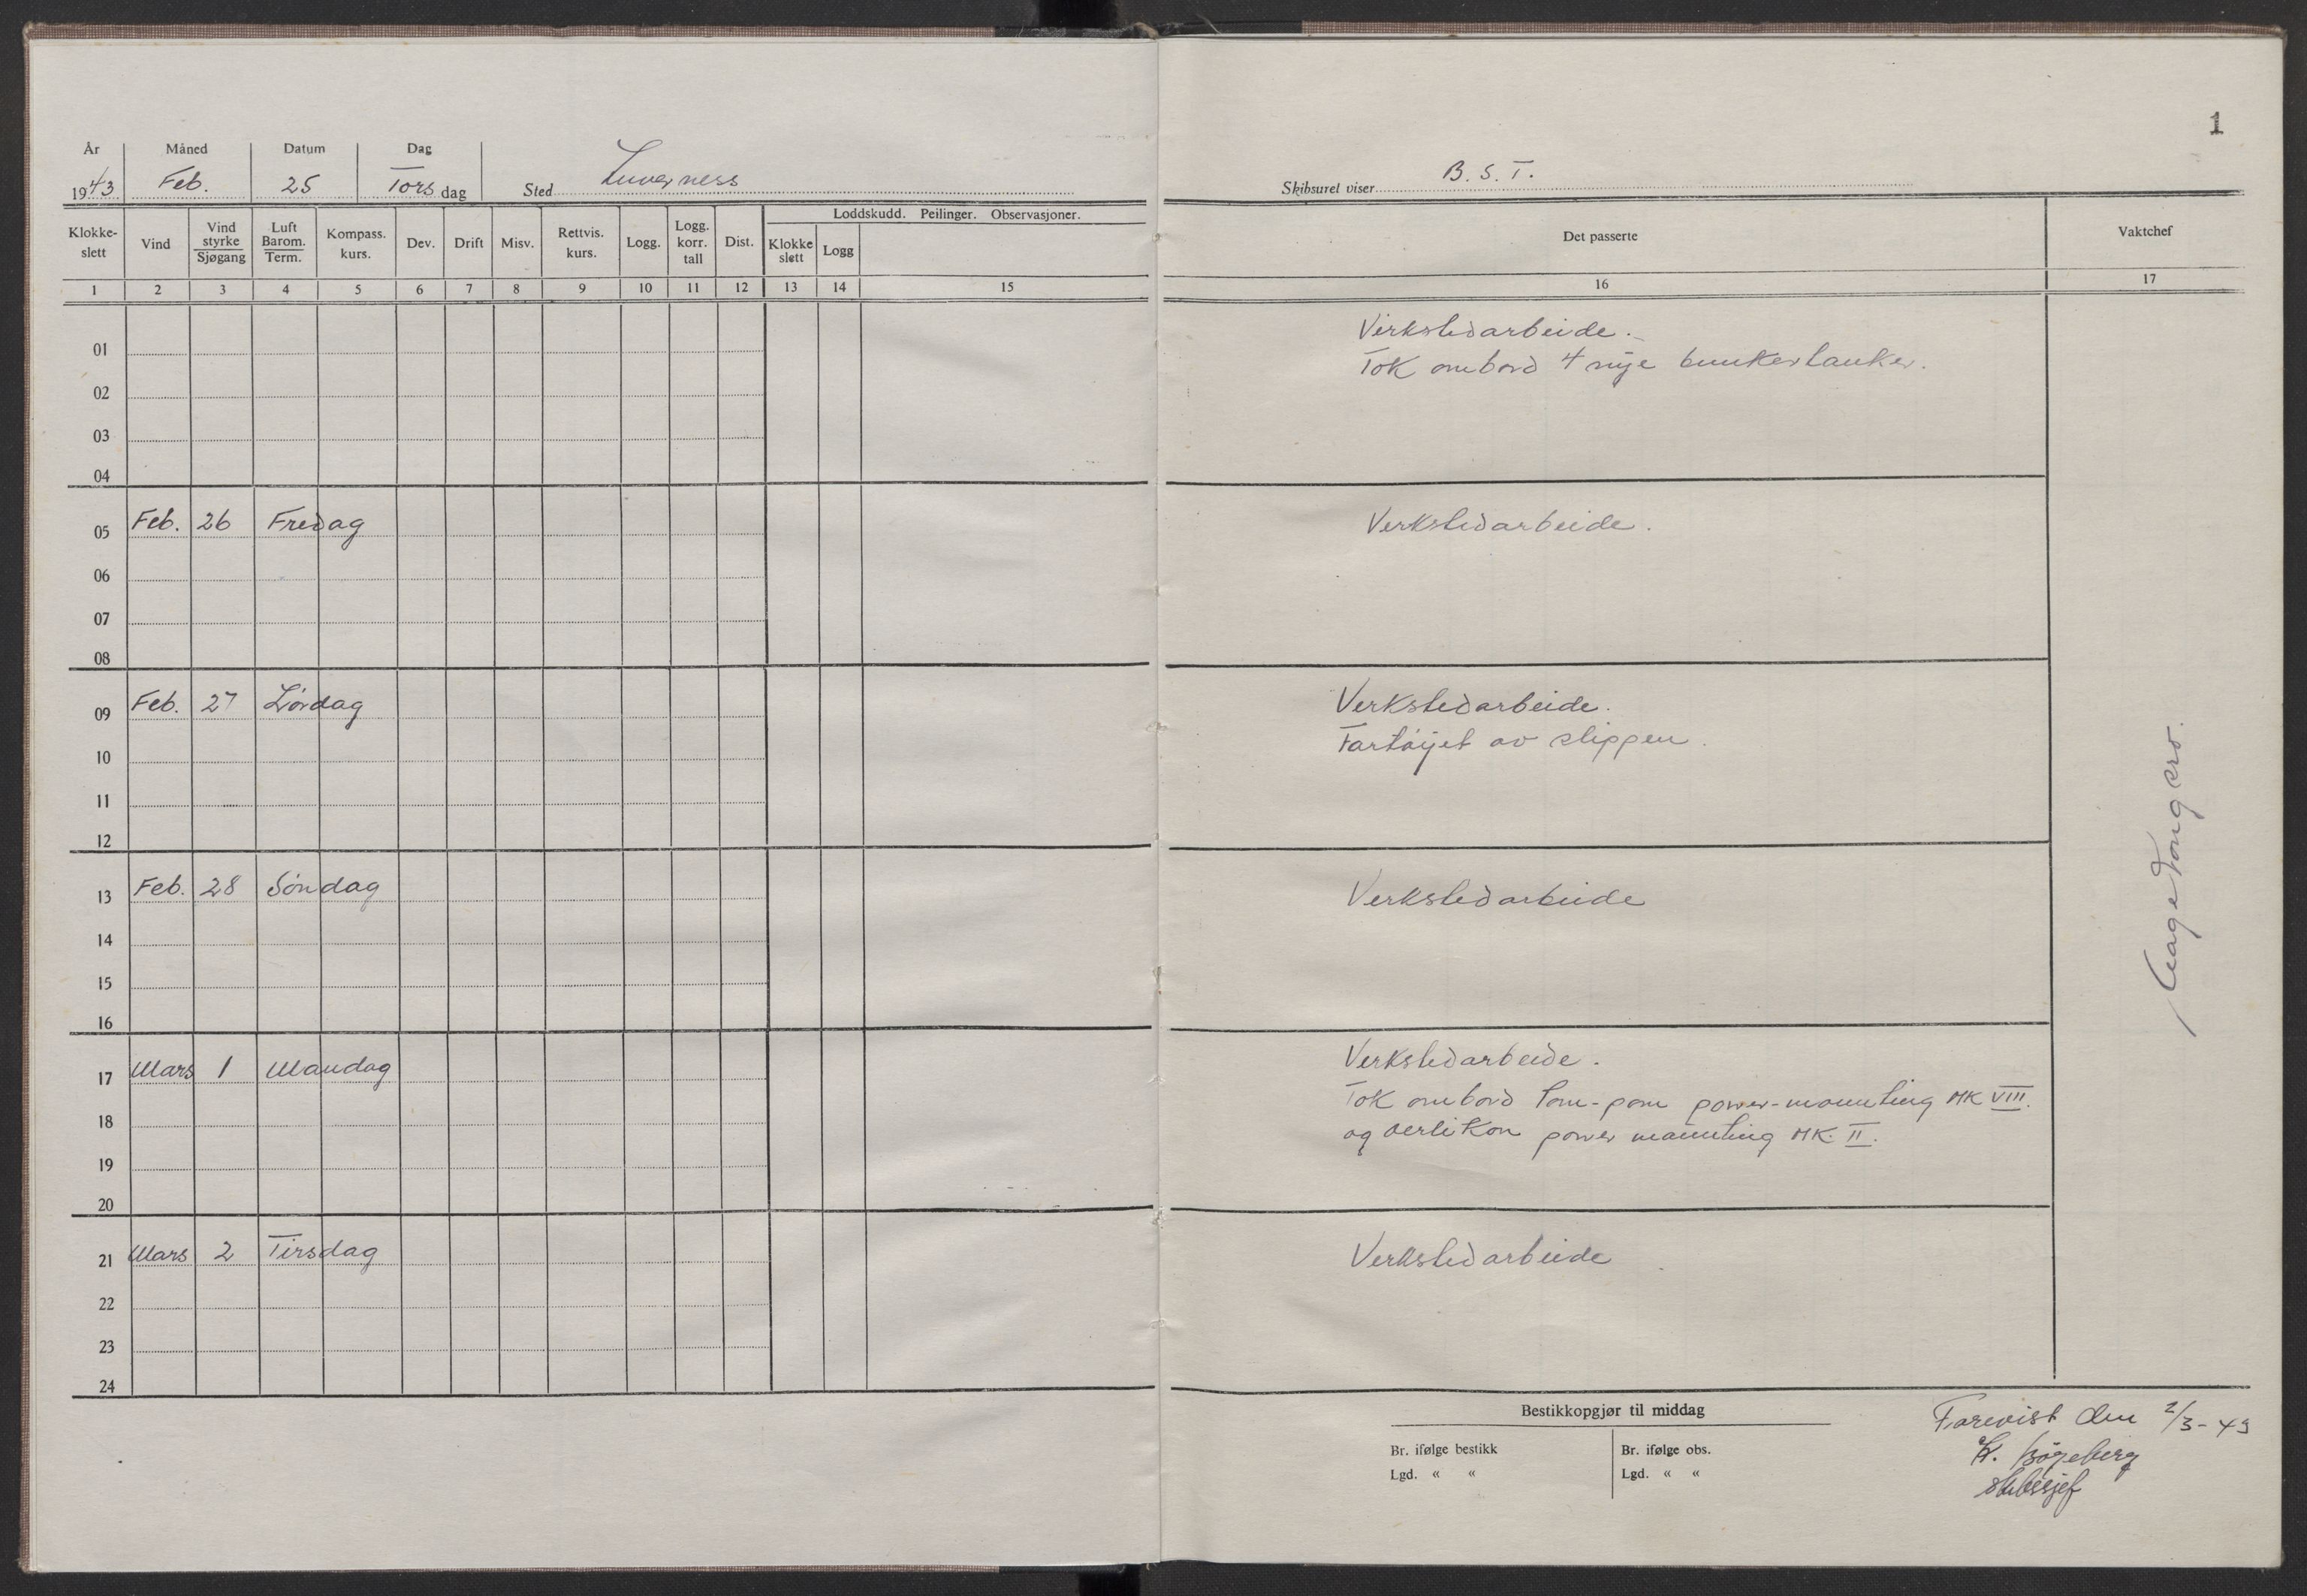 1
År Måned Datum Dag
1943 Feb. 25 Torsdag Sted Inverness
Skibsuret viser B. S. T.
Klokkeslett Vind Vind styrke Sjøgang Luft Barom. Term. Kompass. kurs. Dev. Drift Misv. Rettvis. kurs. Logg. Logg. korr. tall Dist. Loddskudd. Peilinger. Observasjoner. Klokke slett Logg
Det passerte Vaktchef
1 2 3 4 5 6 7 8 9 10 11 12 13 14 15 16 17
Verkstedarbeide.
01
Tok ombord 4 nye bunkertanker.
02
03
04
05 Feb. 26 Fredag Verkstedarbeide.
06
07
08
09 Feb. 27 Lørdag Verkstedarbeide.
Fartøyet av slippen.
10
11
12
13 Feb. 28 Søndag Verkstedarbeide
14
15
16
17 Mars 1 Mandag Verkstedarbeide.
Tok ombord Pom-pom power-mounting MK VIII.
18
og Oerlikon power mounting MK. II.
19
20
21 Mars 2 Tirsdag Verkstedarbeide
22
23
24
Bestikkopgjør til middag
Br. ifølge bestikk Br. ifølge obs.
Lgd. « « Lgd. « «
Forevist den 2/3-43
Bøgeberg
Skibssjef